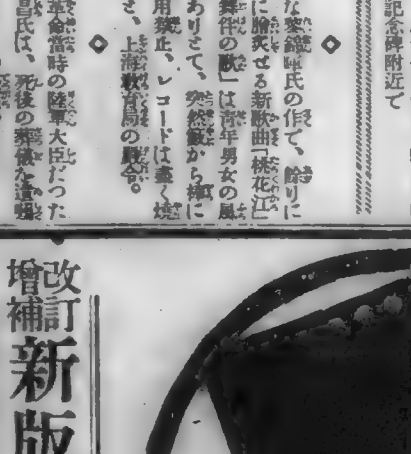 記念碑附近で
な黎錦暉氏の作で、餘りに
に膾炙せる新歌曲「桃花江」
舞伴の歌」は青年男女の風
ありさて、突然藪から棒に
用禁止、レコードは盡く燒
さ、上海教育局の嚴命。
革命當時の陸軍大臣だつた
昌氏は、死後の葬儀を遺囑
改訂
增補
新版